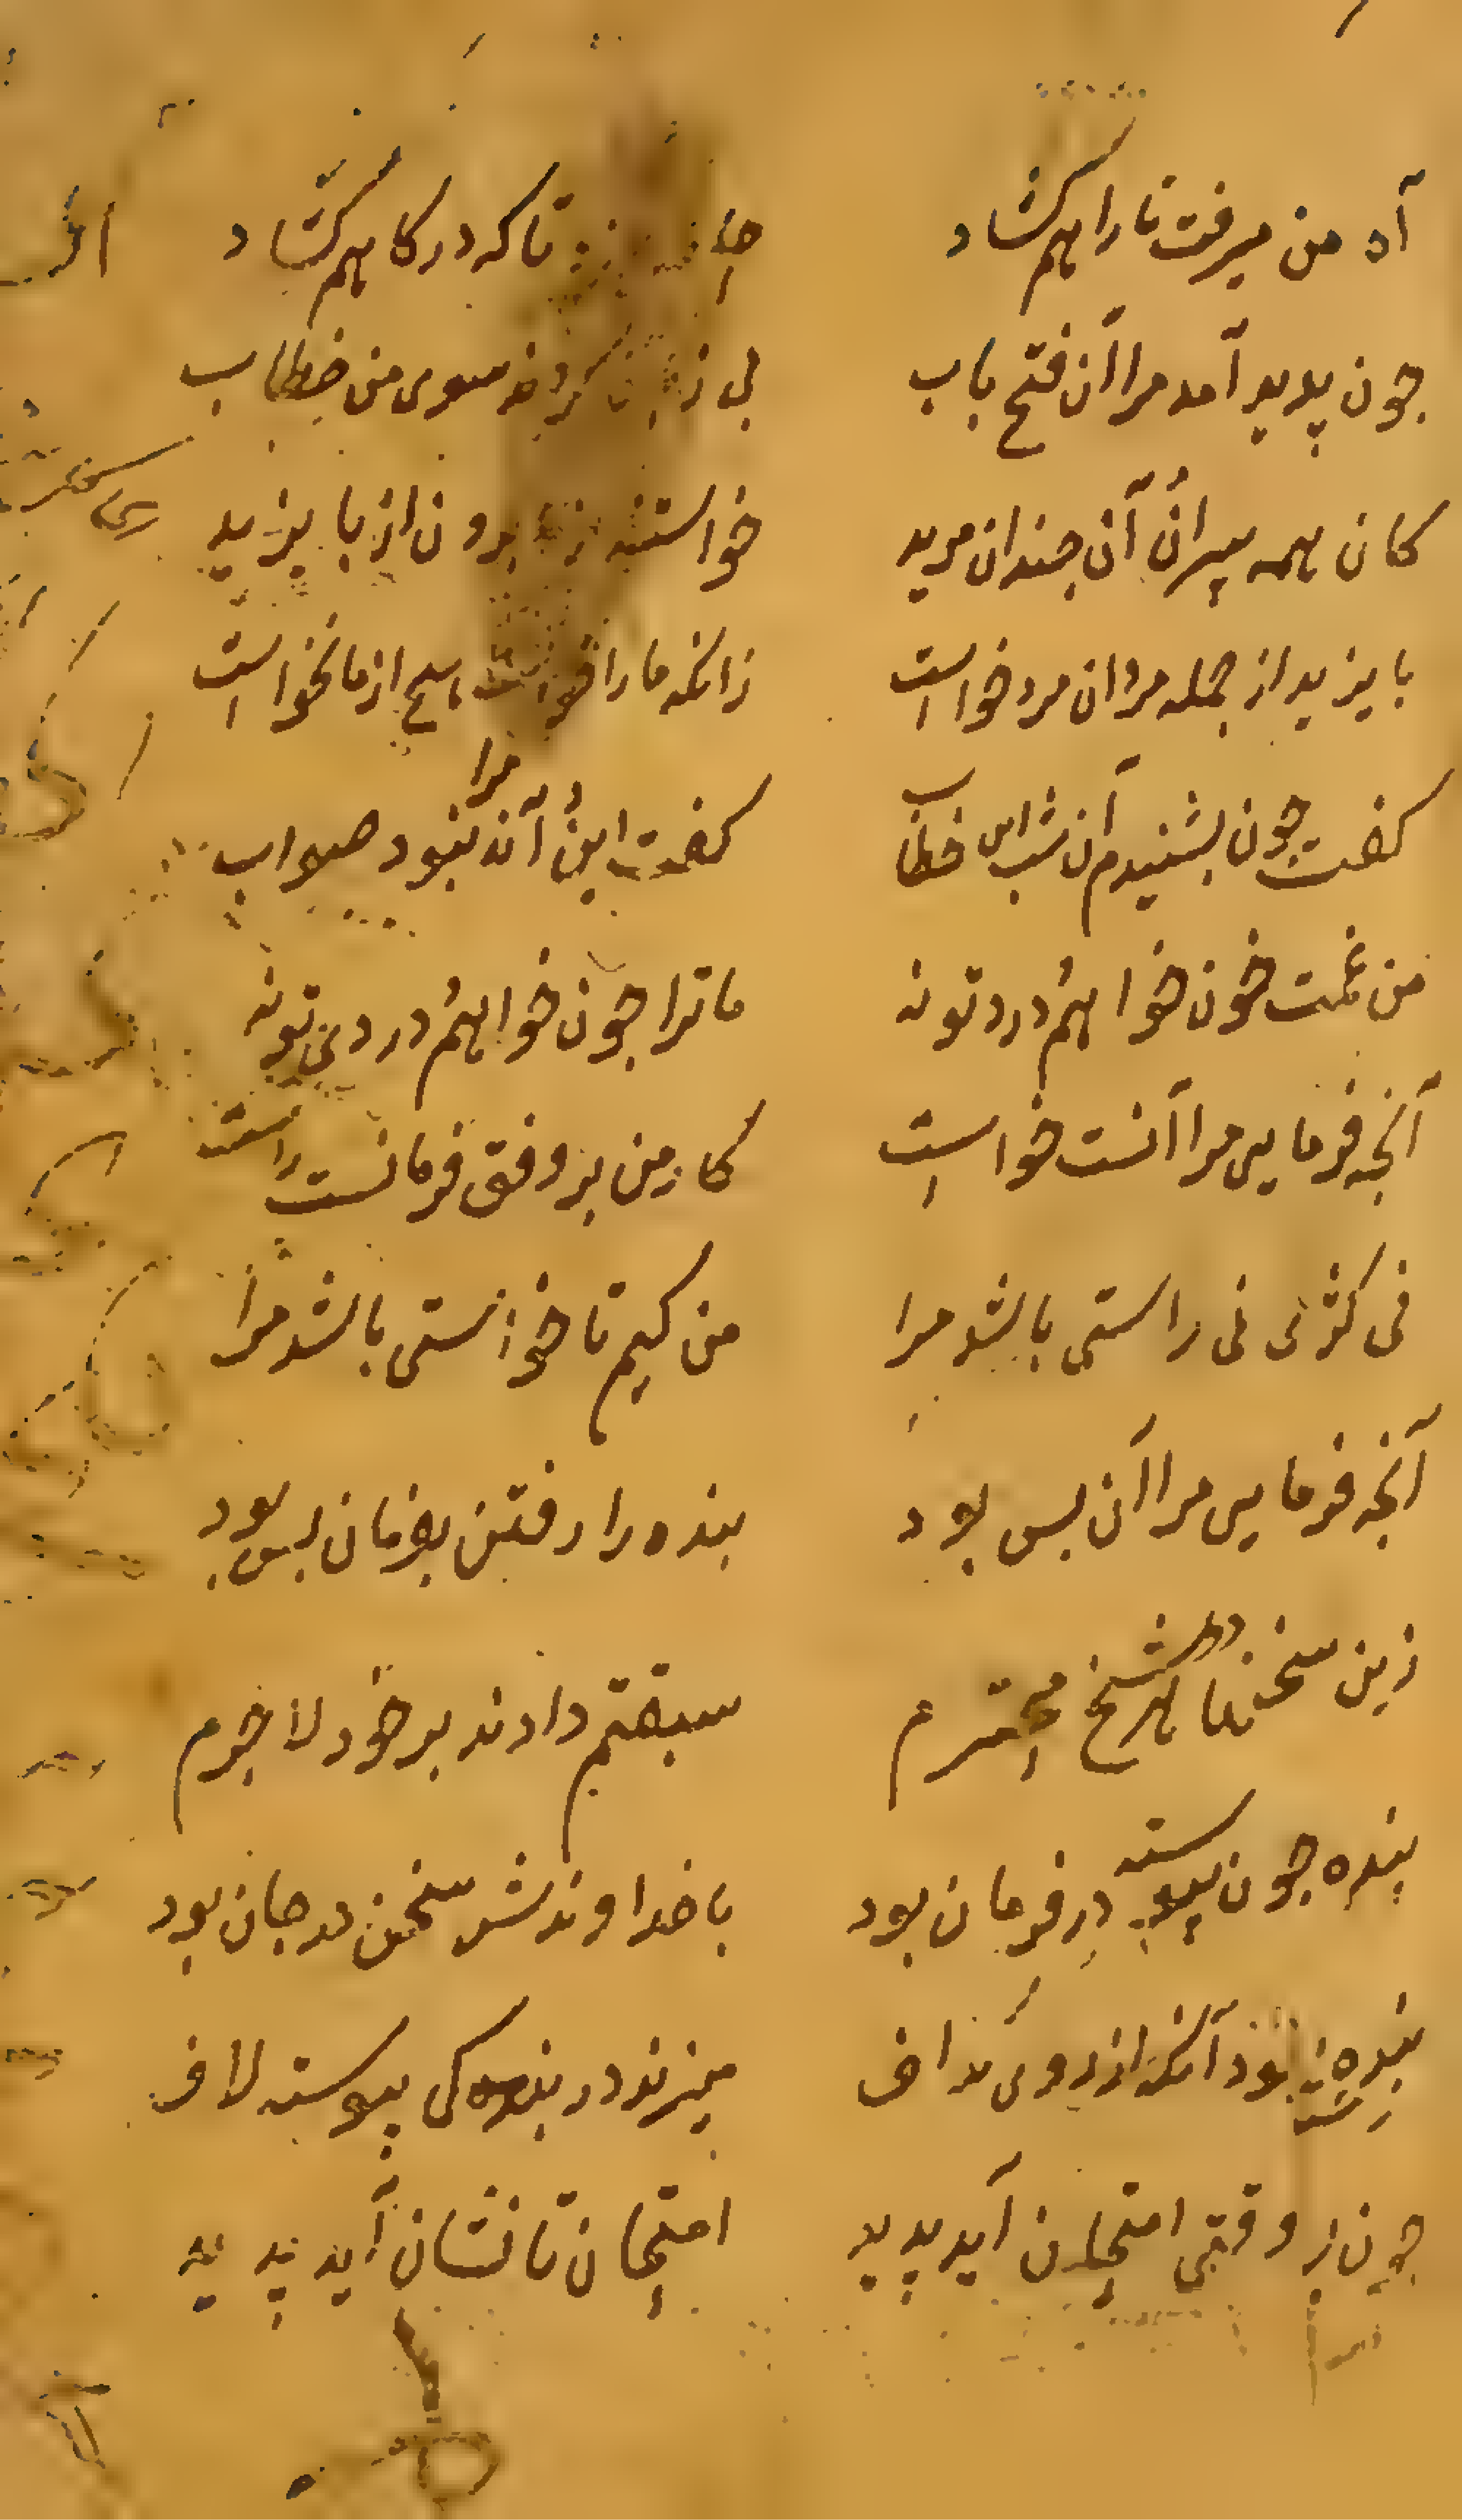 آه من میرفت تا راهم کشاد
تا که درکاهم کشاد
جون پدید آمد مرا آن فتح باب
بی زبان کردند سوی من خطاب
کان همه پیران آن جندان مرید
خواستند بیرون از بایزید
بایزید از جمله مردان مرد خواست
زانکه ما را خواست هیچ از ما نخواست
کفت جون بشنیدم آن شب این خطاب
کفت این و آن مرا نبود صواب
من غمت جون خواهم و درد تو نه
ما ترا جون خواهم و درد منی تو نه
آنجه فرمایی مرا آنست خواست
کار من بر وفق فرمانست راست
نی کژی نی راستی باشد مرا
من کیم تا خواستی باشد مرا
آنجه فرمایی مرا آن بس بود
بنده را رفتن بفرمان بس بود
زین سخنها هر دو شیخ محترم
سبقتم دادند بر خود لاجرم
بنده جون پیوسته در فرمان بود
با خداوندش سخن در جان بود
بنده نبود آنکه از روی کذاف
میزند در بنده کی پیوسته لاف
بنده وقتی امتحان آید پدید
امتحان تا نشان آید پدید